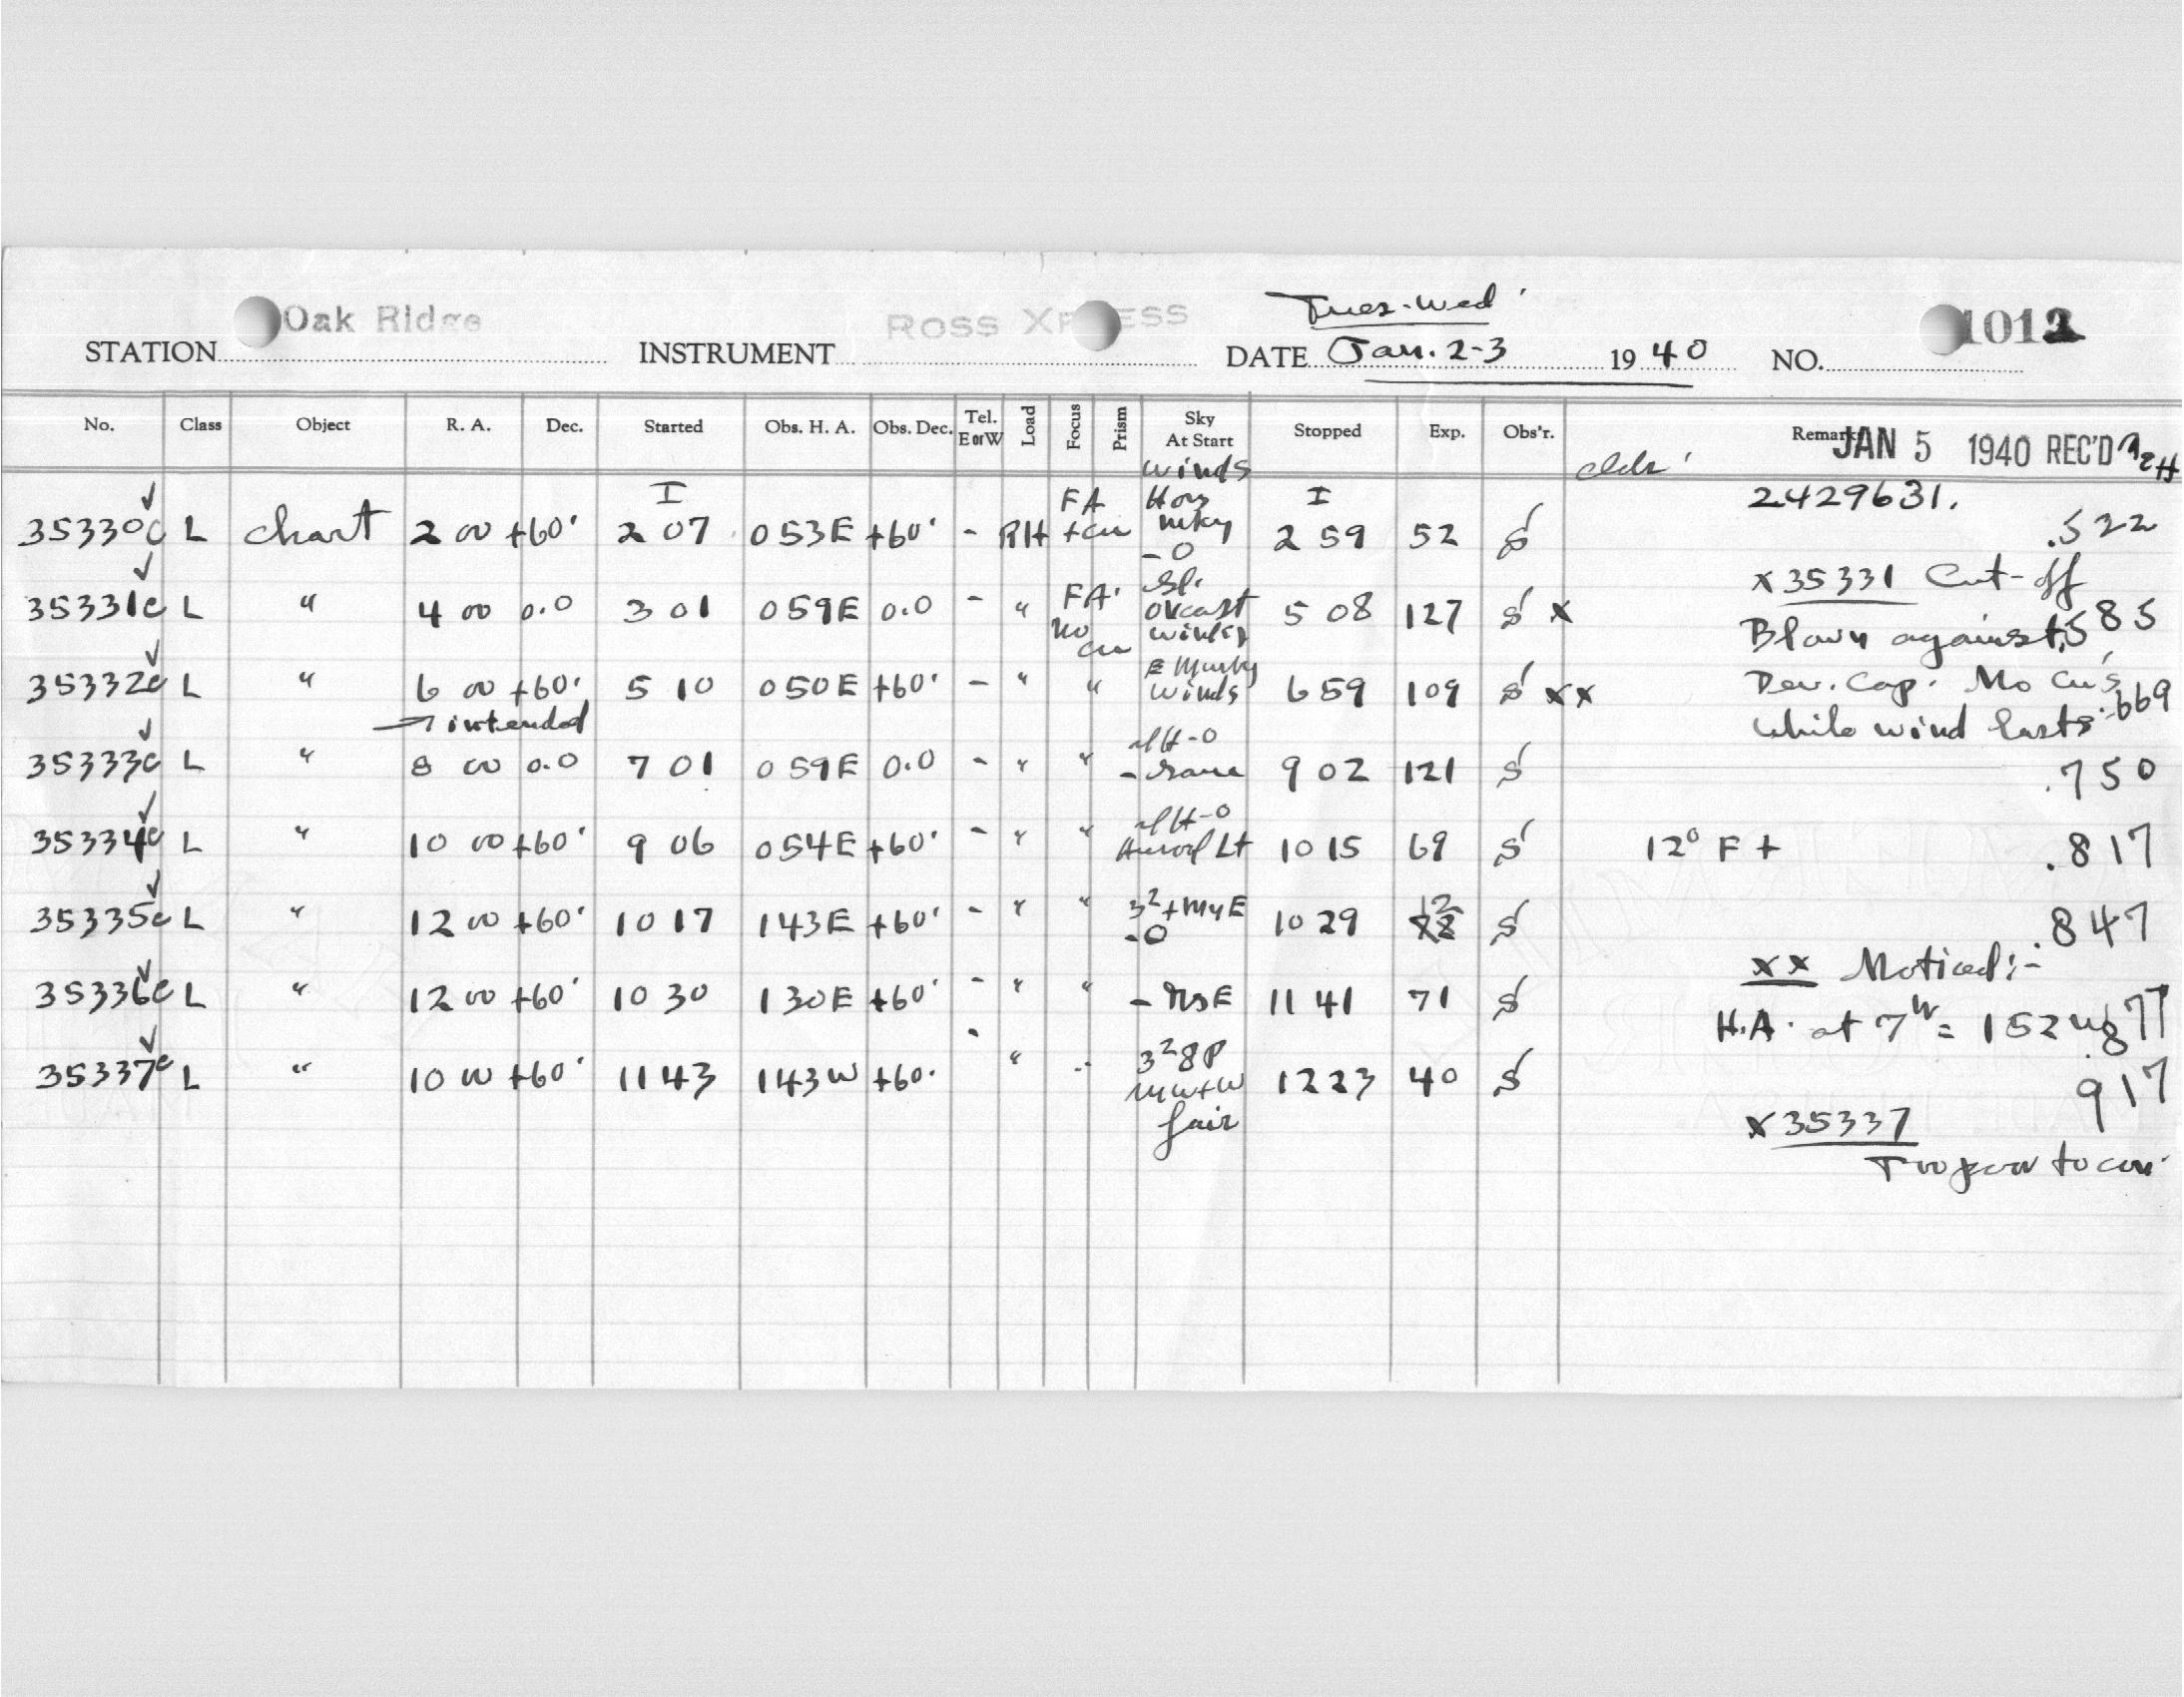 Oak Ridge ROSS XP ESS Tues-Wed 1012
STATION INSTRUMENT DATE Jan. 2-3 1940 NO.
No. Class Object R. A. Dec. Started Obs. H. A. Obs. Dec. Tel. E or W Load Focus Prism Sky At Start Stopped Exp. Obs'r. Remarks JAN 5 1940 REC'D
winds
I FA Hors I 2429631.
35330c L chart 2 00 +60' 2 07 053E +60' - RH +cu mky -0 2 59 52 S .522
Sl. x35331 Cut-off
35331c L " 4 00 0.0 3 01 059E 0.0 - " FA. no cu ovcast winds 5 08 127 S x Blown against .585
35332c L " 6 00 +60' 5 10 050E +60' - " " E Murky winds 6 59 109 S xx Dev. Cap. No cu's .669
→ intended while wind lasts
35333c L " 8 00 0.0 7 01 059E 0.0 - " " -same 9 02 121 S .750
35334c L " 10 00 +60' 9 06 054E +60' - " " Lt 10 15 69 S 12° F + .817
35335c L " 12 00 +60' 10 17 143E +60' - " " -0 10 29 12 S .847
xx Noticed:-
35336c L " 12 00 +60' 10 30 130E +60' - " " 11 41 71 S
H.A. at 7 = 152 877
35337c L " 10 00 +60' 11 43 143W +60' - " " fair 12 23 40 S .917
x35337